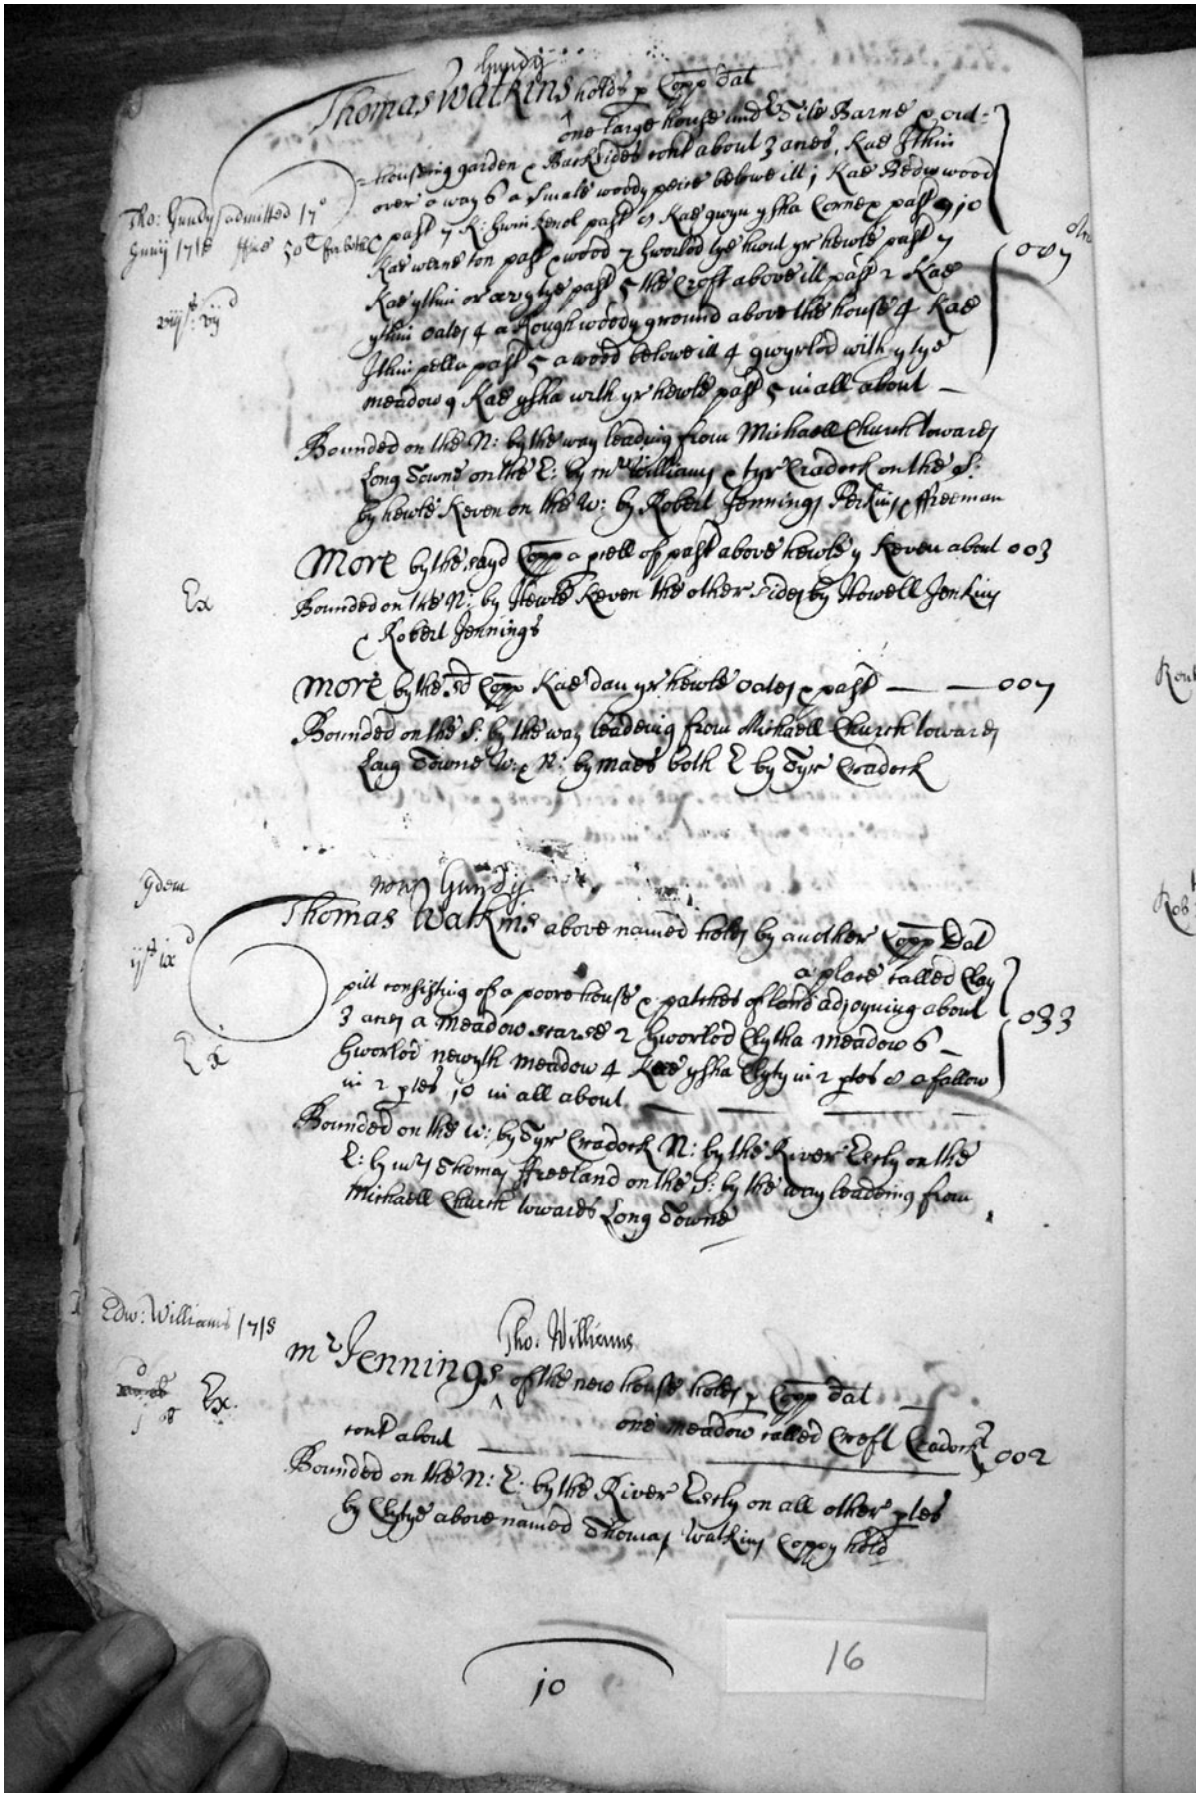 Gundy
Thomas Watkins holds p Copp Dat
one large house and Tile Barne & out=
=housing garden & Backsides cont about 3 acres, Kae Ithin
over a way 6 a smale woody peice belowe ill j Kae Bedw wood
Tho: Gundy admitted 17o
& past 7 K: past 8 Kae gwyn ysha Corne & past 9 jo
Junij 1718 ffine
Kae werne ton past & wood 7 Gworlod tye hwnt yr hewle past 7
087
viijs: vijd
Kae ythin or past 5 the Croft above ill past 2 Kae
ythin oates 4 a Rough woody ground above the house 4 Kae
Ithin pella past 5 a wood belowe ill 4 gwyrlod with y tye
meadow 9 Kae ysha with yr hewle past 5 in all about —
Bounded on the N: by the way leading from Michaell Church towards
Long Towne on the E: by mr Williams & tyr Cradock on the S:
by hewle Keven on the W: by Robert Jennings Perkins & ffreeman
More by the sayd Copp a pcell of past above hewle y Keven about 003
Ex
Bounded on the N: by Hewle Keven the other sides by Howell Jenkins
& Robert Jennings
More by the sd Copp Kae dan yr hewle oates & past — — 007
Bounded on the S: by the way leadeing from Michaell Church towards
Long Towne W: & N: by maes both E by Tyr Cradock
Ydem
now Gundy
Thomas Watkins above named holds by another Copp Dat
ijs ixd
a place called Clay
pitt consisting of a poore house & patches of land adjoyning about
3 acres a meadow scarse 2 Gworlod Clytha meadow 6 —
033
Ex
Gworlod newyth meadow 4 Kae ysha Clyty in 2 ptes 8 a fallow
in 2 ptes jo in all about — — — —
Bounded on the W: by Tyr Cradock N: by the River Escly on the
E: by mrs Thomas ffreeland on the S: by the way leadeing from
Michaell Church towards Long Towne
Edw: Williams 1718
Tho. Williams
mr Jennings ^ of the new house holds p Copp Dat —
Ex.
one meadow called Croft Cradock
cont about — — — 002
Bounded on the N: E: by the River Escly on all other ptes
by Clytye above named Thomas Watkins Coppy hold
jo
16